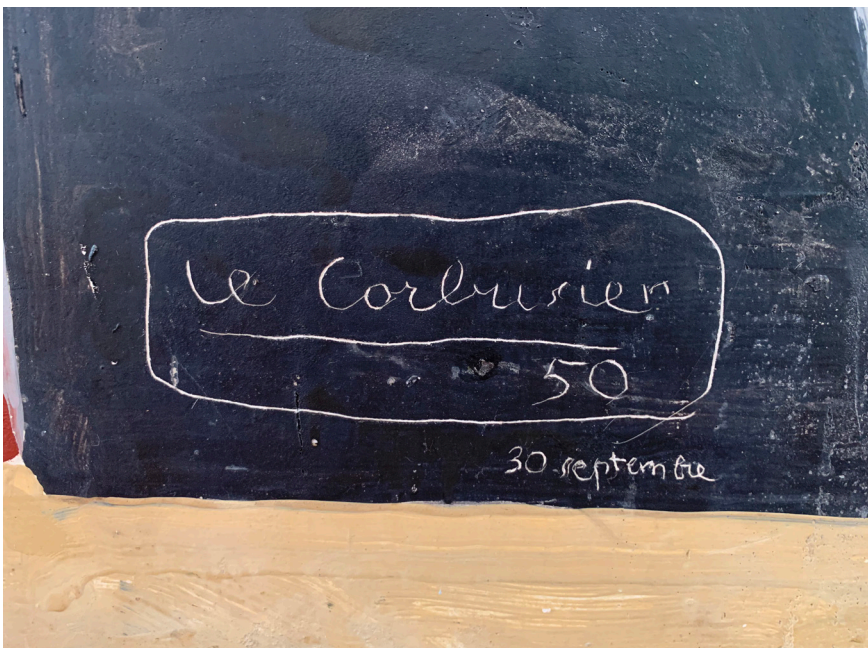 le Corbusier
50
30 septembre